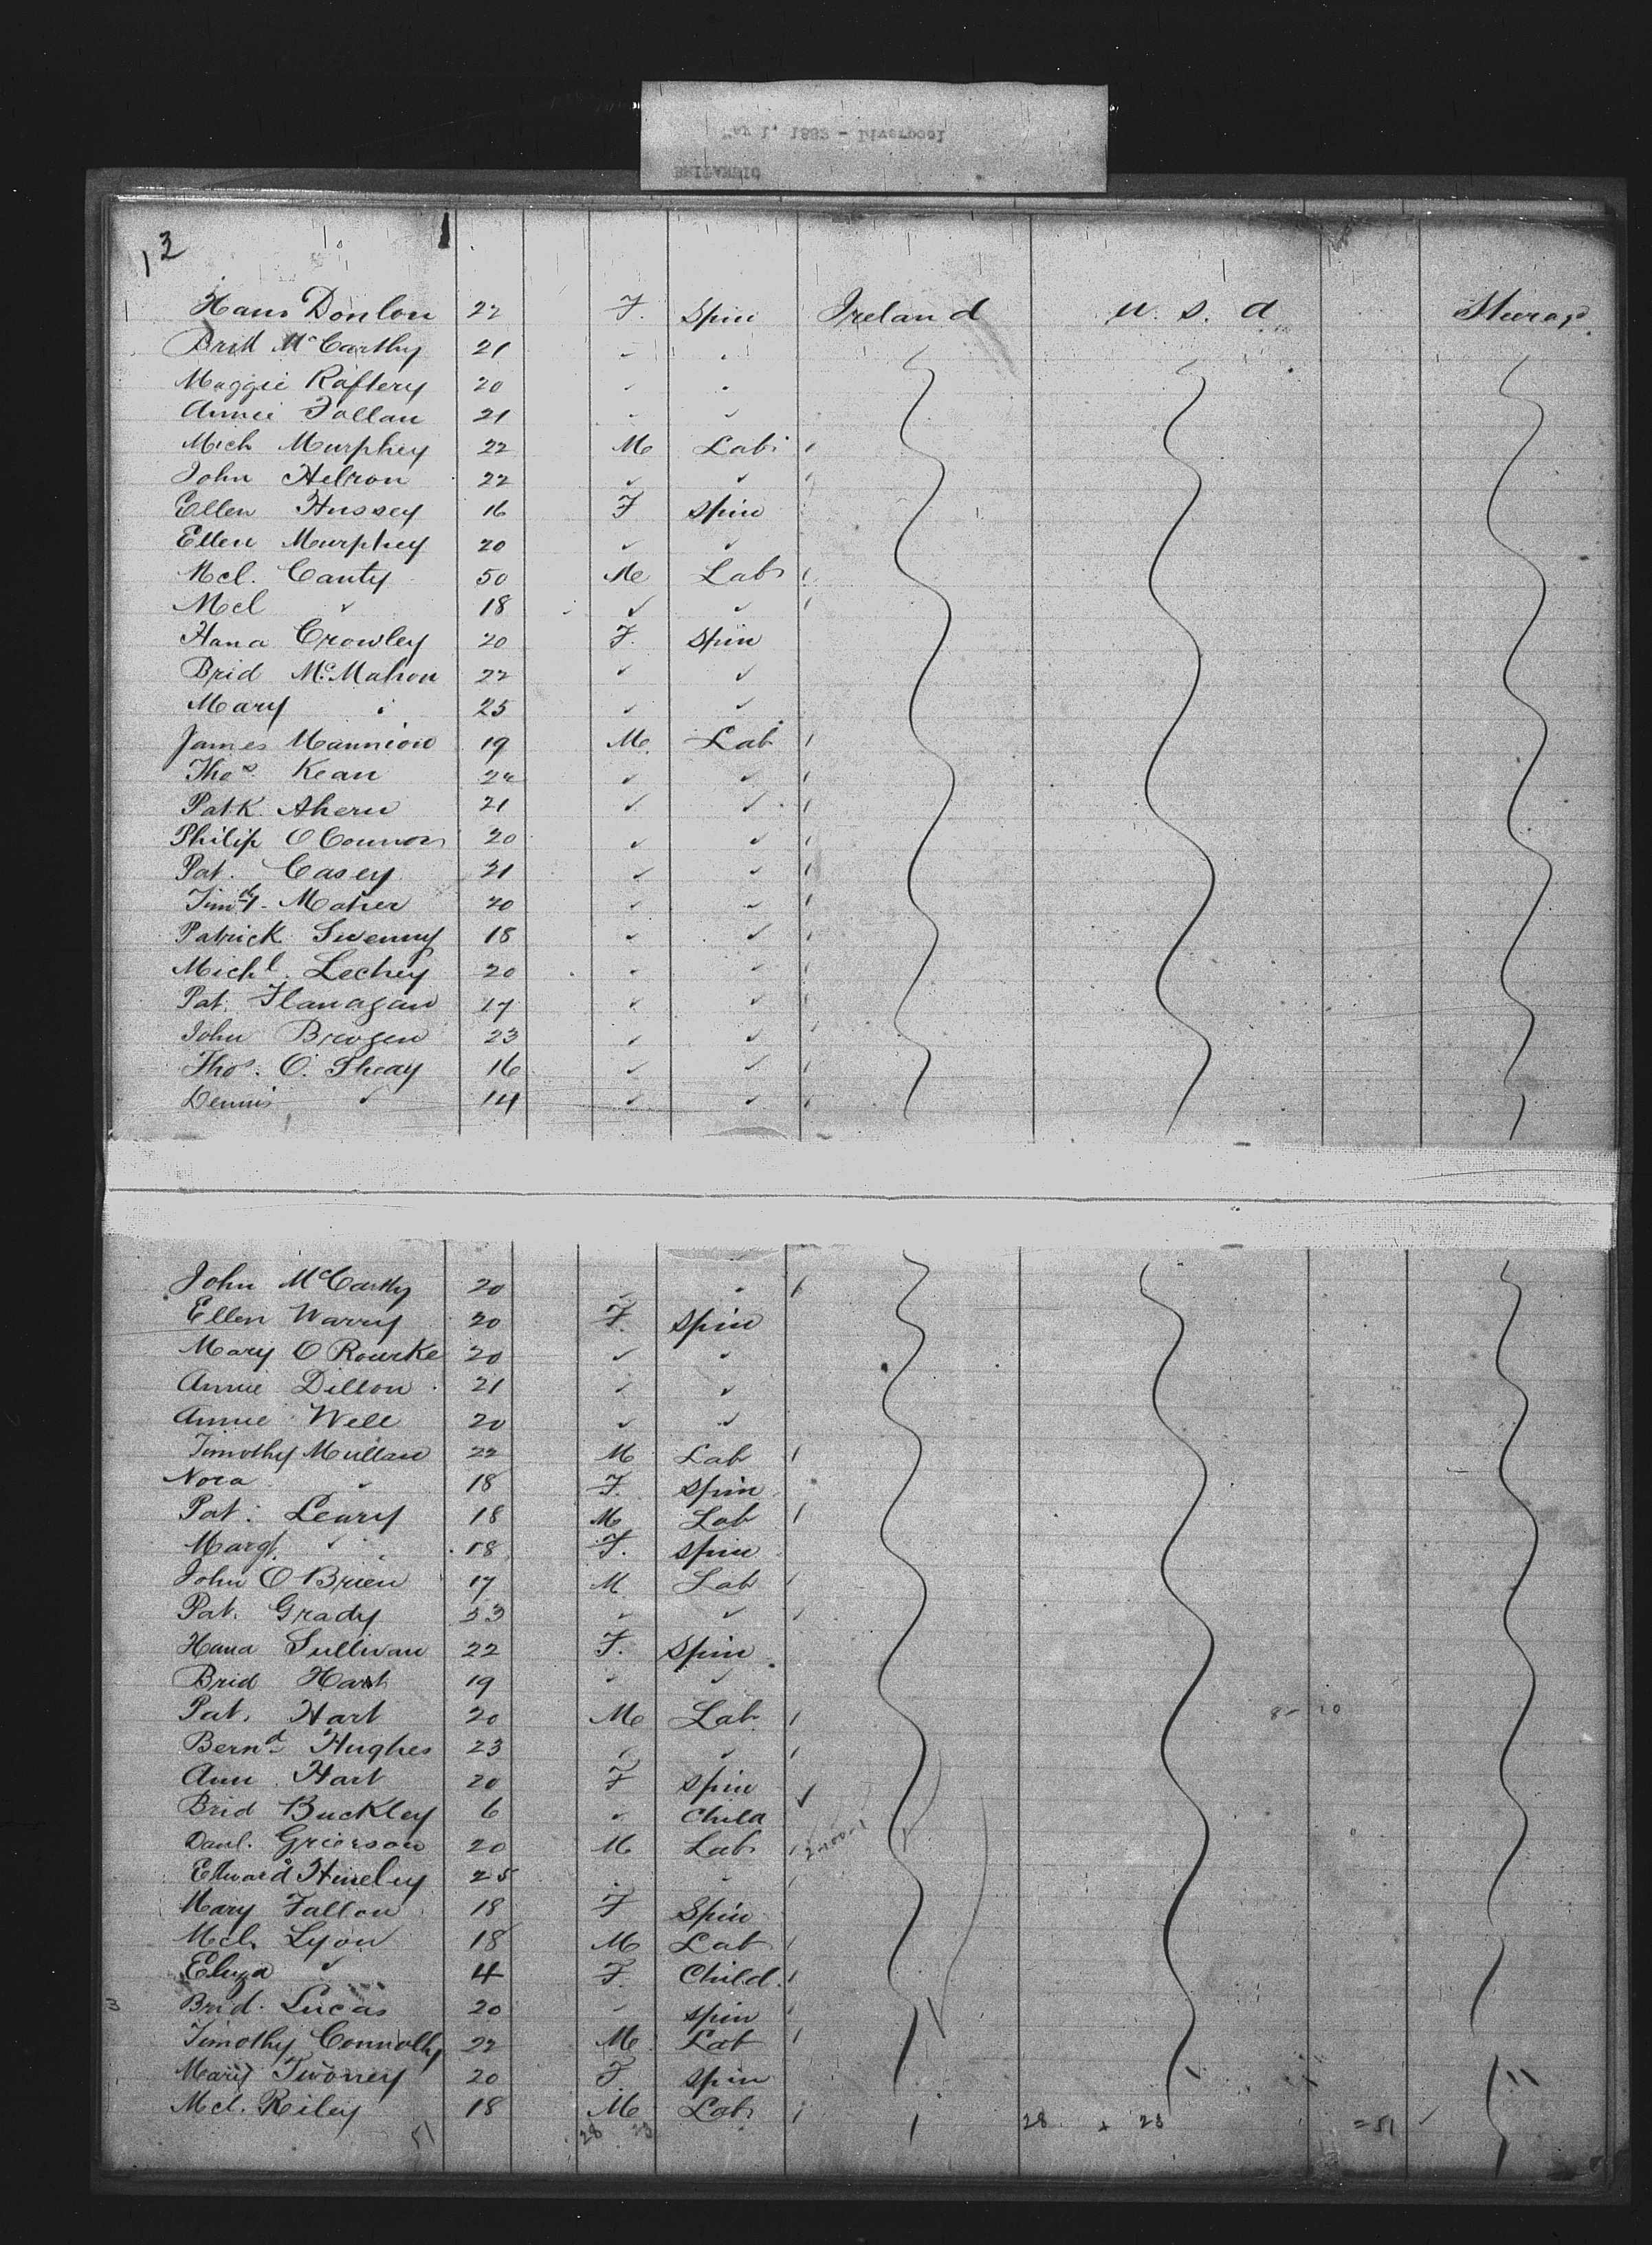 May 1, 1882 - Liverpool
BRITANNIC
13
Hans Donlon 22 F. Spin Ireland U. S. A
Brid McCarthy 21 " "
Maggie Raftery 20 " "
Annie Follan 21 " "
Mich Murphey 22 M Lab
John Helron 22 " "
Ellen Hussey 16 F Spin
Ellen Murphey 20 " "
Mcl. Canty 50 M Lab
Mcl " 18 " "
Hana Crowley 20 F. Spin
Brid McMahon 22 " "
Mary " 25 " "
James Mannion 19 M Lab
Thos. Kean 22 " "
Patk Ahern 21 " "
Philip O Connor 20 " "
Pat. Casey 21 " "
Timty. Maher 20 " "
Patrick Swenny 18 " "
Michl. Lechey 20 " "
Pat. Flanagan 17 " "
John Brogen 23 " "
Thos. O. Sheay 16 " "
Dennis " 14 " "
John McCarthy 20 " "
Ellen Warry 20 F. Spin
Mary O Rourke 20 " "
Annie Dillon 21 " "
Annie Well 20 " "
Timothy Mullan 22 M Lab
Nora " 18 F. Spin
Pat. Leary 18 M Lab
Margt. " 18 F. Spin
John O Brien 17 M Lab
Pat. Grady 33 " "
Hana Sullivan 22 F. Spin
Brid Hart 19 " "
Pat. Hart 20 M Lab
Bernd Hughes 23 " "
Ann Hart 20 F Spin
Brid Buckley 6 " Child
Danl. Grierson 20 M Lab
Edward 25 " "
Mary Fallon 18 F Spin
Mcl. Lyon 18 M Lab
Eliza " 4 F. Child
Brid. Lucas 20 " Spin
Timothy Connolly 22 M Lab
Mary Twomey 20 F. Spin
Mcl. Riley 18 M Lab
51 28 23 28 + 23 = 51